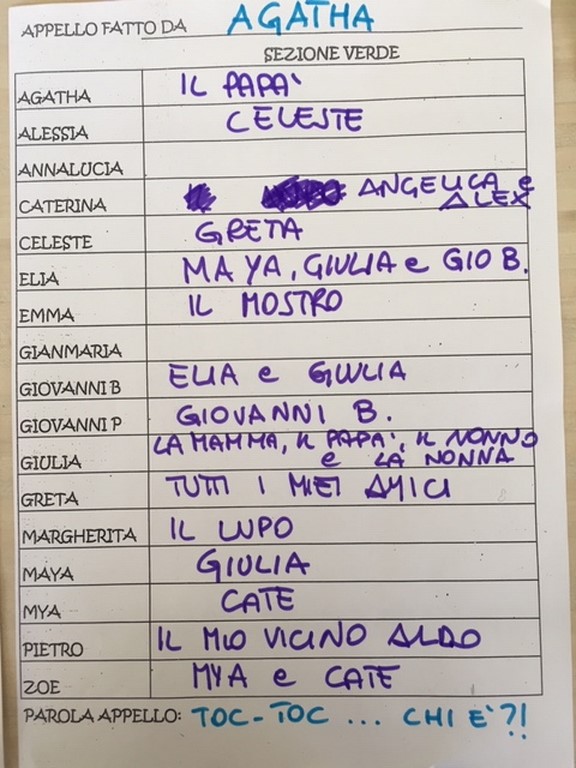 APPELLO FATTO DA AGATHA
SEZIONE VERDE
AGATHA IL PAPA'
ALESSIA CELESTE
ANNALUCIA
CATERINA ANGELICA e ALEX
CELESTE GRETA
ELIA MAYA, GIULIA e GIO B.
EMMA IL MOSTRO
GIANMARIA
GIOVANNI B ELIA e GIULIA
GIOVANNI P GIOVANNI B.
GIULIA LA MAMMA, IL PAPA', IL NONNO
e LA NONNA
GRETA TUTTI I MIEI AMICI
MARGHERITA IL LUPO
MAYA GIULIA
MYA CATE
PIETRO IL MIO VICINO ALDO
ZOE MYA e CATE
PAROLA APPELLO: TOC-TOC ... CHI E'?!